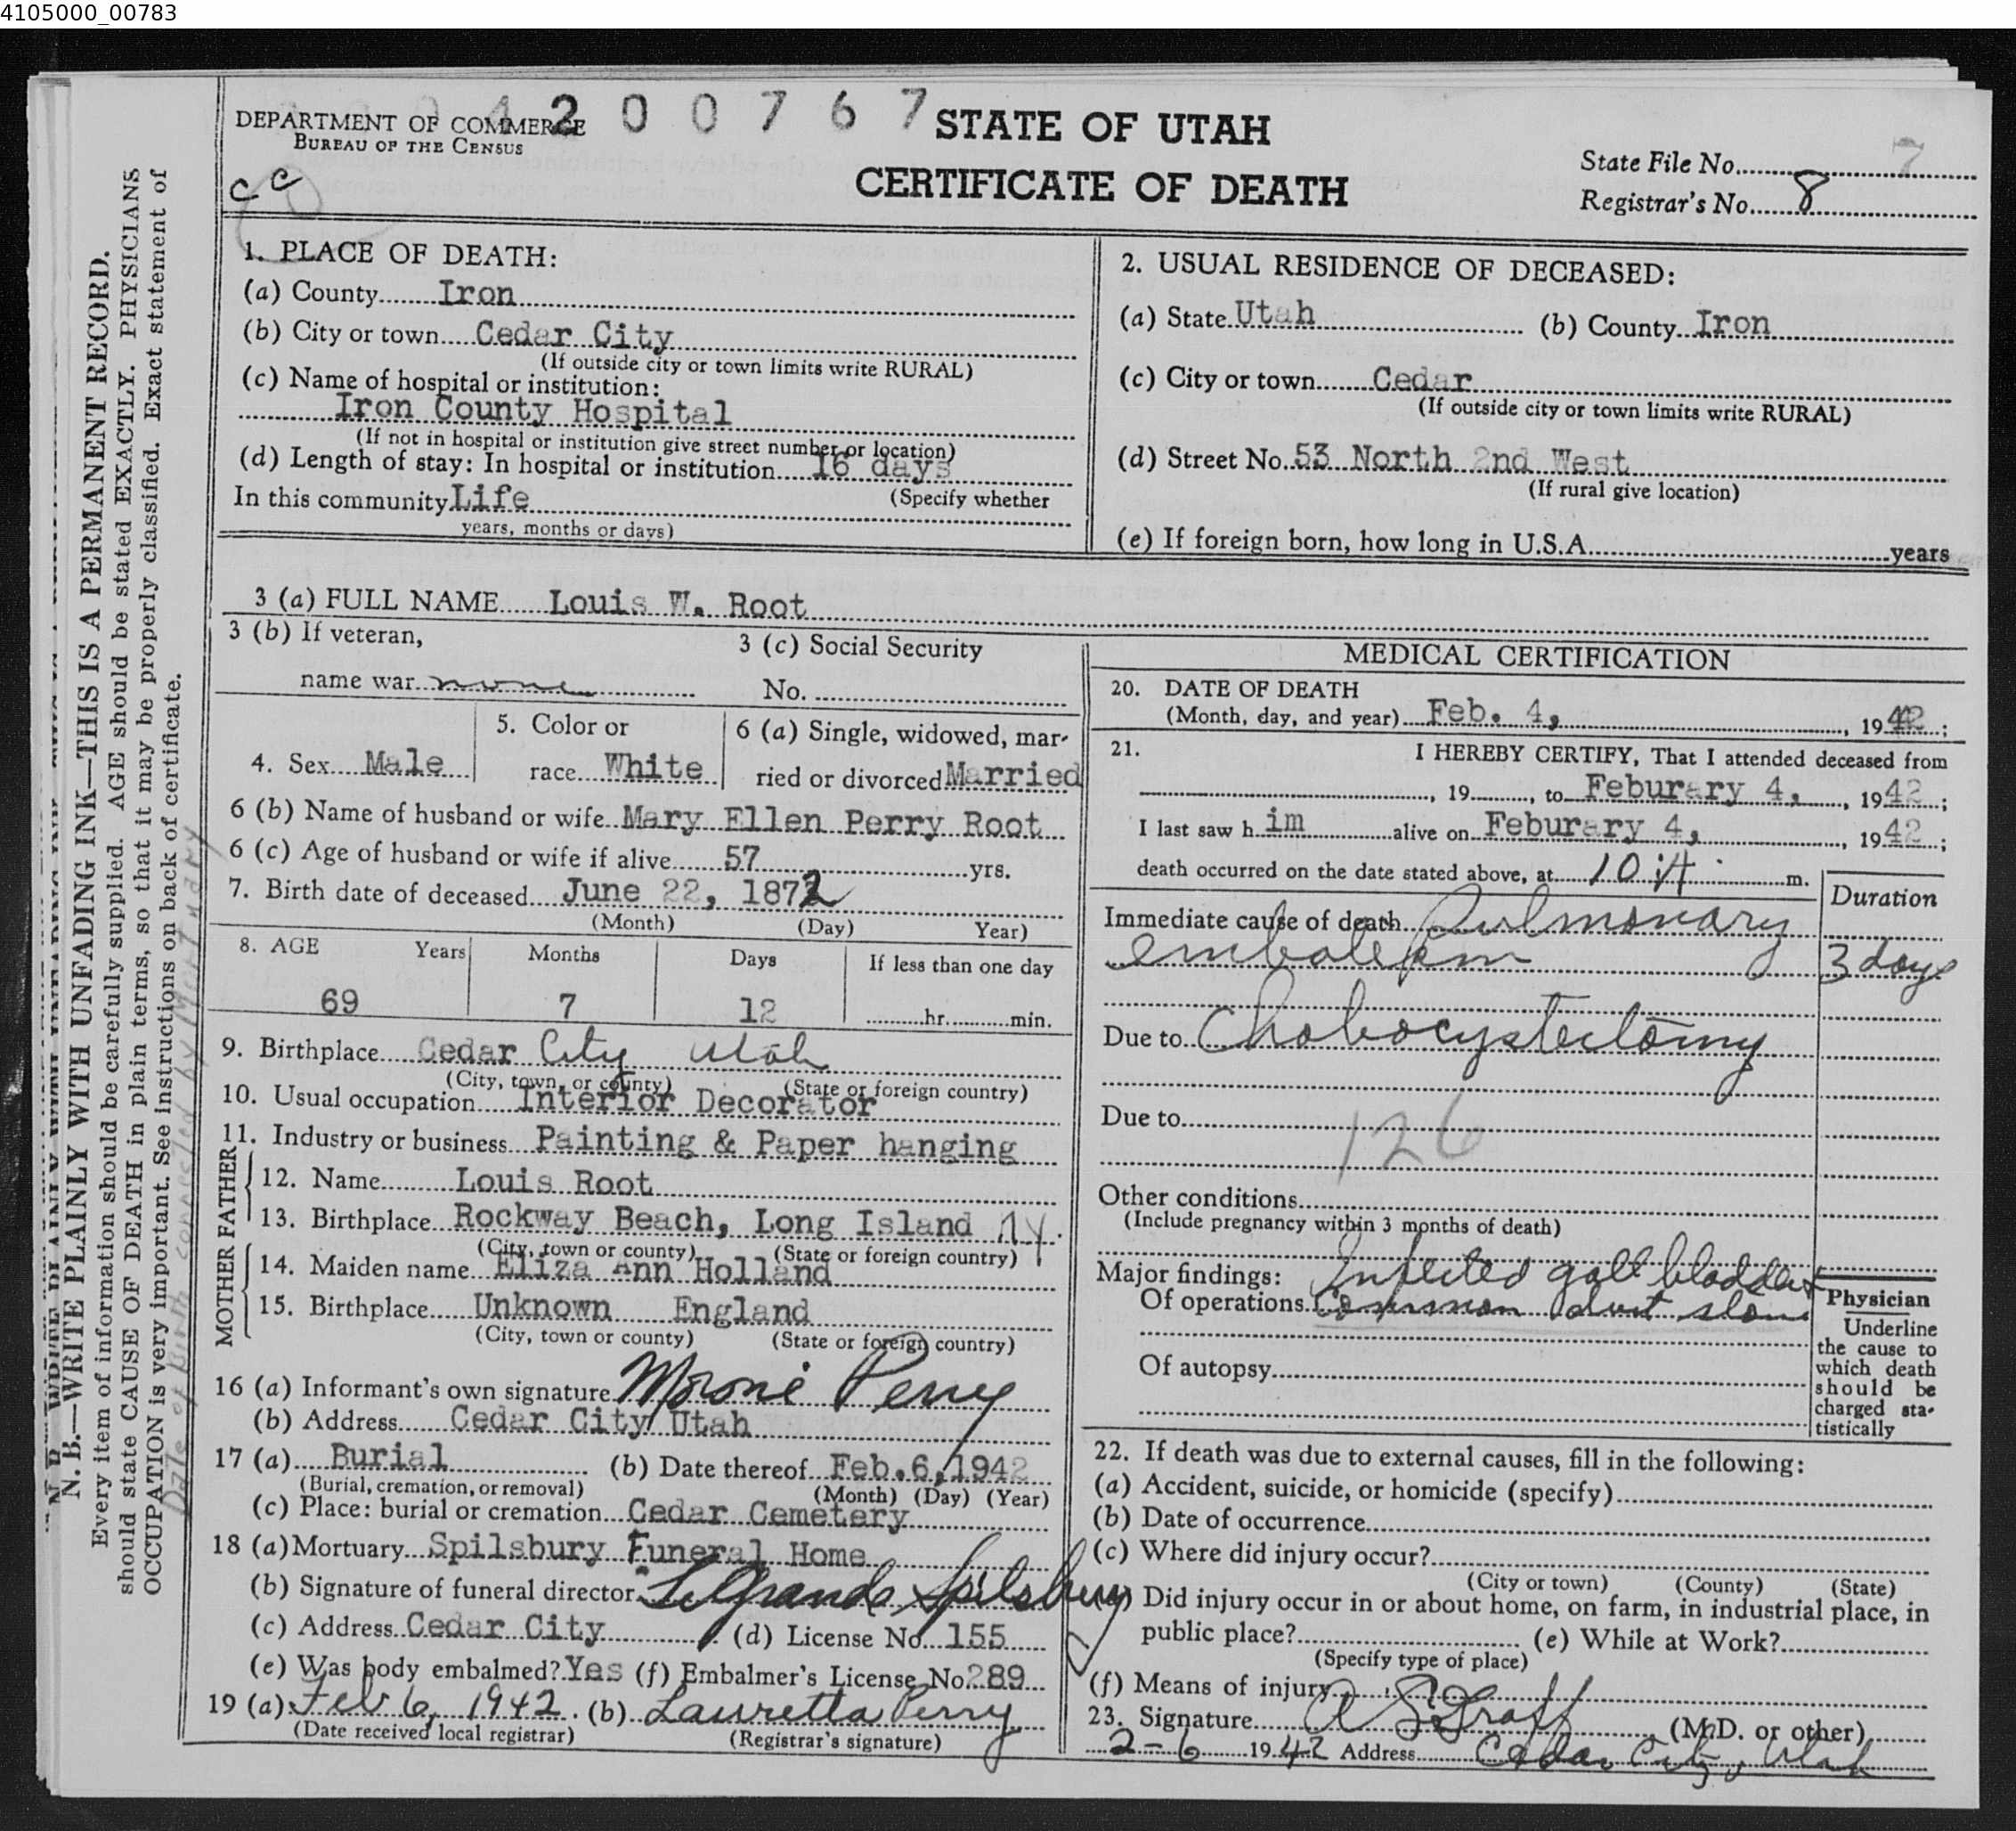 4105000_00783
4 2 0 0 7 6 7
DEPARTMENT OF COMMERCE
BUREAU OF THE CENSUS
STATE OF UTAH
CERTIFICATE OF DEATH
State File No. 7
Registrar's No. 8
cc
1. PLACE OF DEATH:
(a) County Iron
(b) City or town Cedar City
(If outside city or town limits write RURAL)
(c) Name of hospital or institution:
Iron County Hospital
(If not in hospital or institution give street number or location)
(d) Length of stay: In hospital or institution 16 days
In this community Life (Specify whether
years, months or days)
2. USUAL RESIDENCE OF DECEASED:
(a) State Utah (b) County Iron
(c) City or town Cedar
(If outside city or town limits write RURAL)
(d) Street No. 53 North 2nd West
(If rural give location)
(e) If foreign born, how long in U.S.A. years
3 (a) FULL NAME Louis W. Root
3 (b) If veteran,
name war none
3 (c) Social Security
No.
4. Sex Male
5. Color or
race White
6 (a) Single, widowed, mar-
ried or divorced Married
6 (b) Name of husband or wife Mary Ellen Perry Root
6 (c) Age of husband or wife if alive 57 yrs.
7. Birth date of deceased June 22, 1872
(Month) (Day) Year)
8. AGE Years Months Days If less than one day
69 7 12 hr. min.
9. Birthplace Cedar City Utah
(City, town, or county) (State or foreign country)
10. Usual occupation Interior Decorator
11. Industry or business Painting & Paper hanging
FATHER
12. Name Louis Root
13. Birthplace Rockway Beach, Long Island NY.
(City, town or county) (State or foreign country)
MOTHER
14. Maiden name Eliza Ann Holland
15. Birthplace Unknown England
(City, town or county) (State or foreign country)
16 (a) Informant's own signature Moroni Perry
(b) Address Cedar City Utah
17 (a) Burial (b) Date thereof Feb. 6, 1942
(Burial, cremation, or removal) (Month) (Day) (Year)
(c) Place: burial or cremation Cedar Cemetery
18 (a) Mortuary Spilsbury Funeral Home
(b) Signature of funeral director LeGrande Spilsbury
(c) Address Cedar City (d) License No. 155
(e) Was body embalmed? Yes (f) Embalmer's License No. 289
19 (a) Feb 6, 1942. (b) Lauretta Perry
(Date received local registrar) (Registrar's signature)
MEDICAL CERTIFICATION
20. DATE OF DEATH
(Month, day, and year) Feb. 4, , 1942 ;
21. I HEREBY CERTIFY, That I attended deceased from
, 19 , to Feburary 4, , 1942 ;
I last saw h im alive on Feburary 4, , 1942 ;
death occurred on the date stated above, at 10 A. m.
Duration
Immediate cause of death Pulmonary
embolism 3 days
Due to Cholocystectomy
Due to
126
Other conditions
(Include pregnancy within 3 months of death)
Major findings: Infected gall bladder
Of operations. Common duct stone
Of autopsy
Physician
Underline
the cause to
which death
should be
charged sta-
tistically
22. If death was due to external causes, fill in the following:
(a) Accident, suicide, or homicide (specify)
(b) Date of occurrence
(c) Where did injury occur?
(City or town) (County) (State)
Did injury occur in or about home, on farm, in industrial place, in
public place? (e) While at Work?
(Specify type of place)
(f) Means of injury
23. Signature (M.D. or other)
2-6 1942 Address Cedar City, Utah
N. B.—WRITE PLAINLY WITH UNFADING INK—THIS IS A PERMANENT RECORD.
Every item of information should be carefully supplied. AGE should be stated EXACTLY. PHYSICIANS
should state CAUSE OF DEATH in plain terms, so that it may be properly classified. Exact statement of
OCCUPATION is very important. See instructions on back of certificate.
Date of birth corrected by